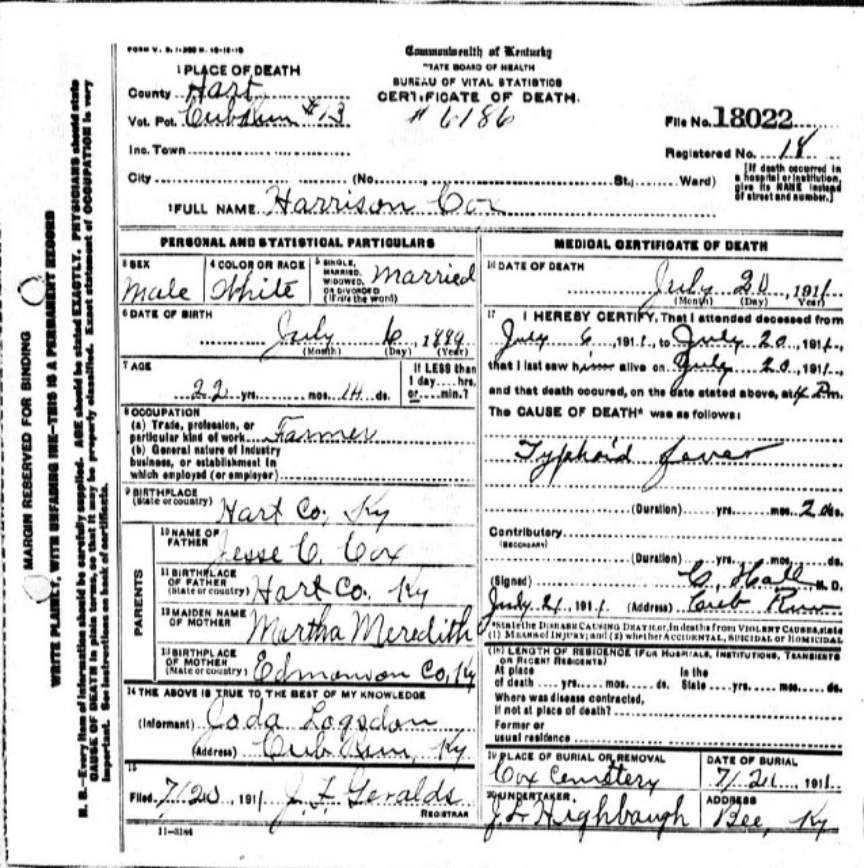 FORM V. S. 1-300 M. 10-16-10
Commonwealth of Kentucky
STATE BOARD OF HEALTH
BUREAU OF VITAL STATISTICS
CERTIFICATE OF DEATH.
# 6186
1 PLACE OF DEATH
County Hart
Vot. Pct. Cub Run #13
Inc. Town
City (No. , St.; Ward)
File No. 18022
Registered No. 18
[If death occurred in
a hospital or institution,
give its NAME instead
of street and number.]
2 FULL NAME Harrison Cox
PERSONAL AND STATISTICAL PARTICULARS
3 SEX
Male
4 COLOR OR RACE
White
5 SINGLE,
MARRIED,
WIDOWED,
OR DIVORCED
(Write the word)
Married
6 DATE OF BIRTH
July 6, 1889
(Month) (Day) (Year)
7 AGE
22 yrs. mos. 14 ds.
If LESS than
1 day....hrs.
or....min.?
8 OCCUPATION
(a) Trade, profession, or
particular kind of work Farmer
(b) General nature of industry
business, or establishment in
which employed (or employer)
9 BIRTHPLACE
(State or country) Hart Co, Ky
PARENTS
10 NAME OF
FATHER Jesse C. Cox
11 BIRTHPLACE
OF FATHER
(State or country) Hart Co. Ky
12 MAIDEN NAME
OF MOTHER Martha Meredith
13 BIRTHPLACE
OF MOTHER
(State or country) Edmonson Co, Ky
14 THE ABOVE IS TRUE TO THE BEST OF MY KNOWLEDGE
(Informant) Joda Logsdon
(Address) Cub Run, Ky
15
Filed 7/20, 1911 J. F. Geralds
REGISTRAR
11-3184
MEDICAL CERTIFICATE OF DEATH
16 DATE OF DEATH
July 20, 1911
(Month) (Day) Year)
17 I HEREBY CERTIFY, That I attended deceased from
July 6, 1911, to July 20, 1911,
that I last saw him alive on July 20, 1911,
and that death occured, on the date stated above, at 4 Pm.
The CAUSE OF DEATH* was as follows:
Typhoid fever
(Duration) yrs. mos. 20 ds.
Contributory
(SECONDARY)
(Duration) yrs. mos. ds.
(Signed) C. Hall M. D.
July 21, 1911 (Address) Cub Run
*State the DISEASE CAUSING DEATH or, in deaths from VIOLENT CAUSES, state
(1) MEANS of INJURY; and (2) whether ACCIDENTAL, SUICIDAL or HOMICIDAL
(18) LENGTH OF RESIDENCE (FOR HOSPITALS, INSTITUTIONS, TRANSIENTS
OR RECENT RESIDENTS)
At place In the
of death .... yrs. .... mos. .... ds. State .... yrs. .... mos. .... ds.
Where was disease contracted,
If not at place of death?
Former or
usual residence
19 PLACE OF BURIAL OR REMOVAL
Cox Cemetery
DATE OF BURIAL
7/21, 1911
20 UNDERTAKER
J L Highbaugh
ADDRESS
Bee, Ky
MARGIN RESERVED FOR BINDING
WRITE PLAINLY, WITH UNFADING INK—THIS IS A PERMANENT RECORD
N. B.—Every item of information should be carefully supplied. AGE should be stated EXACTLY. PHYSICIANS should state
CAUSE OF DEATH in plain terms, so that it may be properly classified. Exact statement of OCCUPATION is very
important. See instructions on back of certificate.